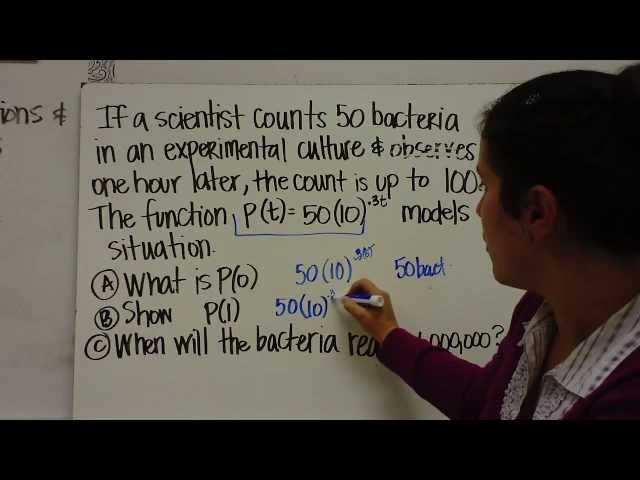 ions &
If a scientist counts 50 bacteria
in an experimental culture & observes
one hour later, the count is up to 100
The function P(t) = 50(10)^.3t models
situation.
Ⓐ What is P(0) 50(10) 50 bact.
Ⓑ Show P(1) 50(10)
Ⓒ When will the bacteria 1,000,000?